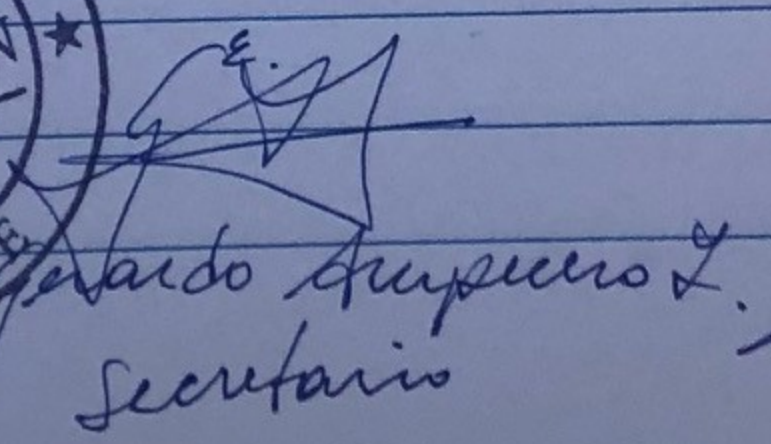 Gerardo Ampuero Z.
Secretario